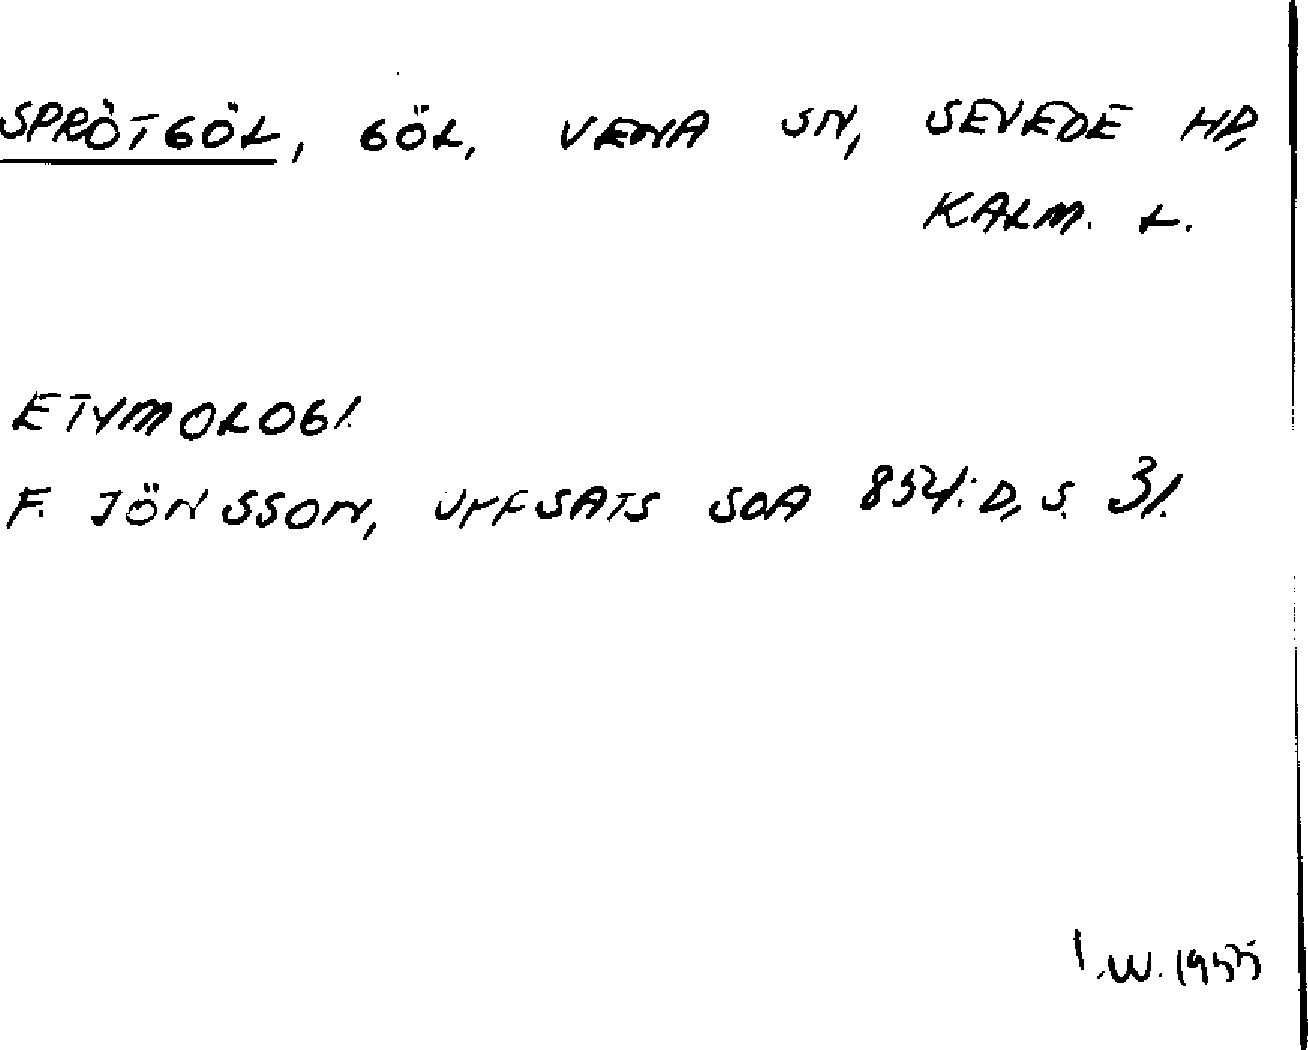 SPRÖTGÖL, GÖL, VENA SN, SEVEDE HD,
KALM. L.
ETYMOLOGI.
F. JÖNSSON, UPPSATS SOA 8541:D, S. 31.
I.W. 1955